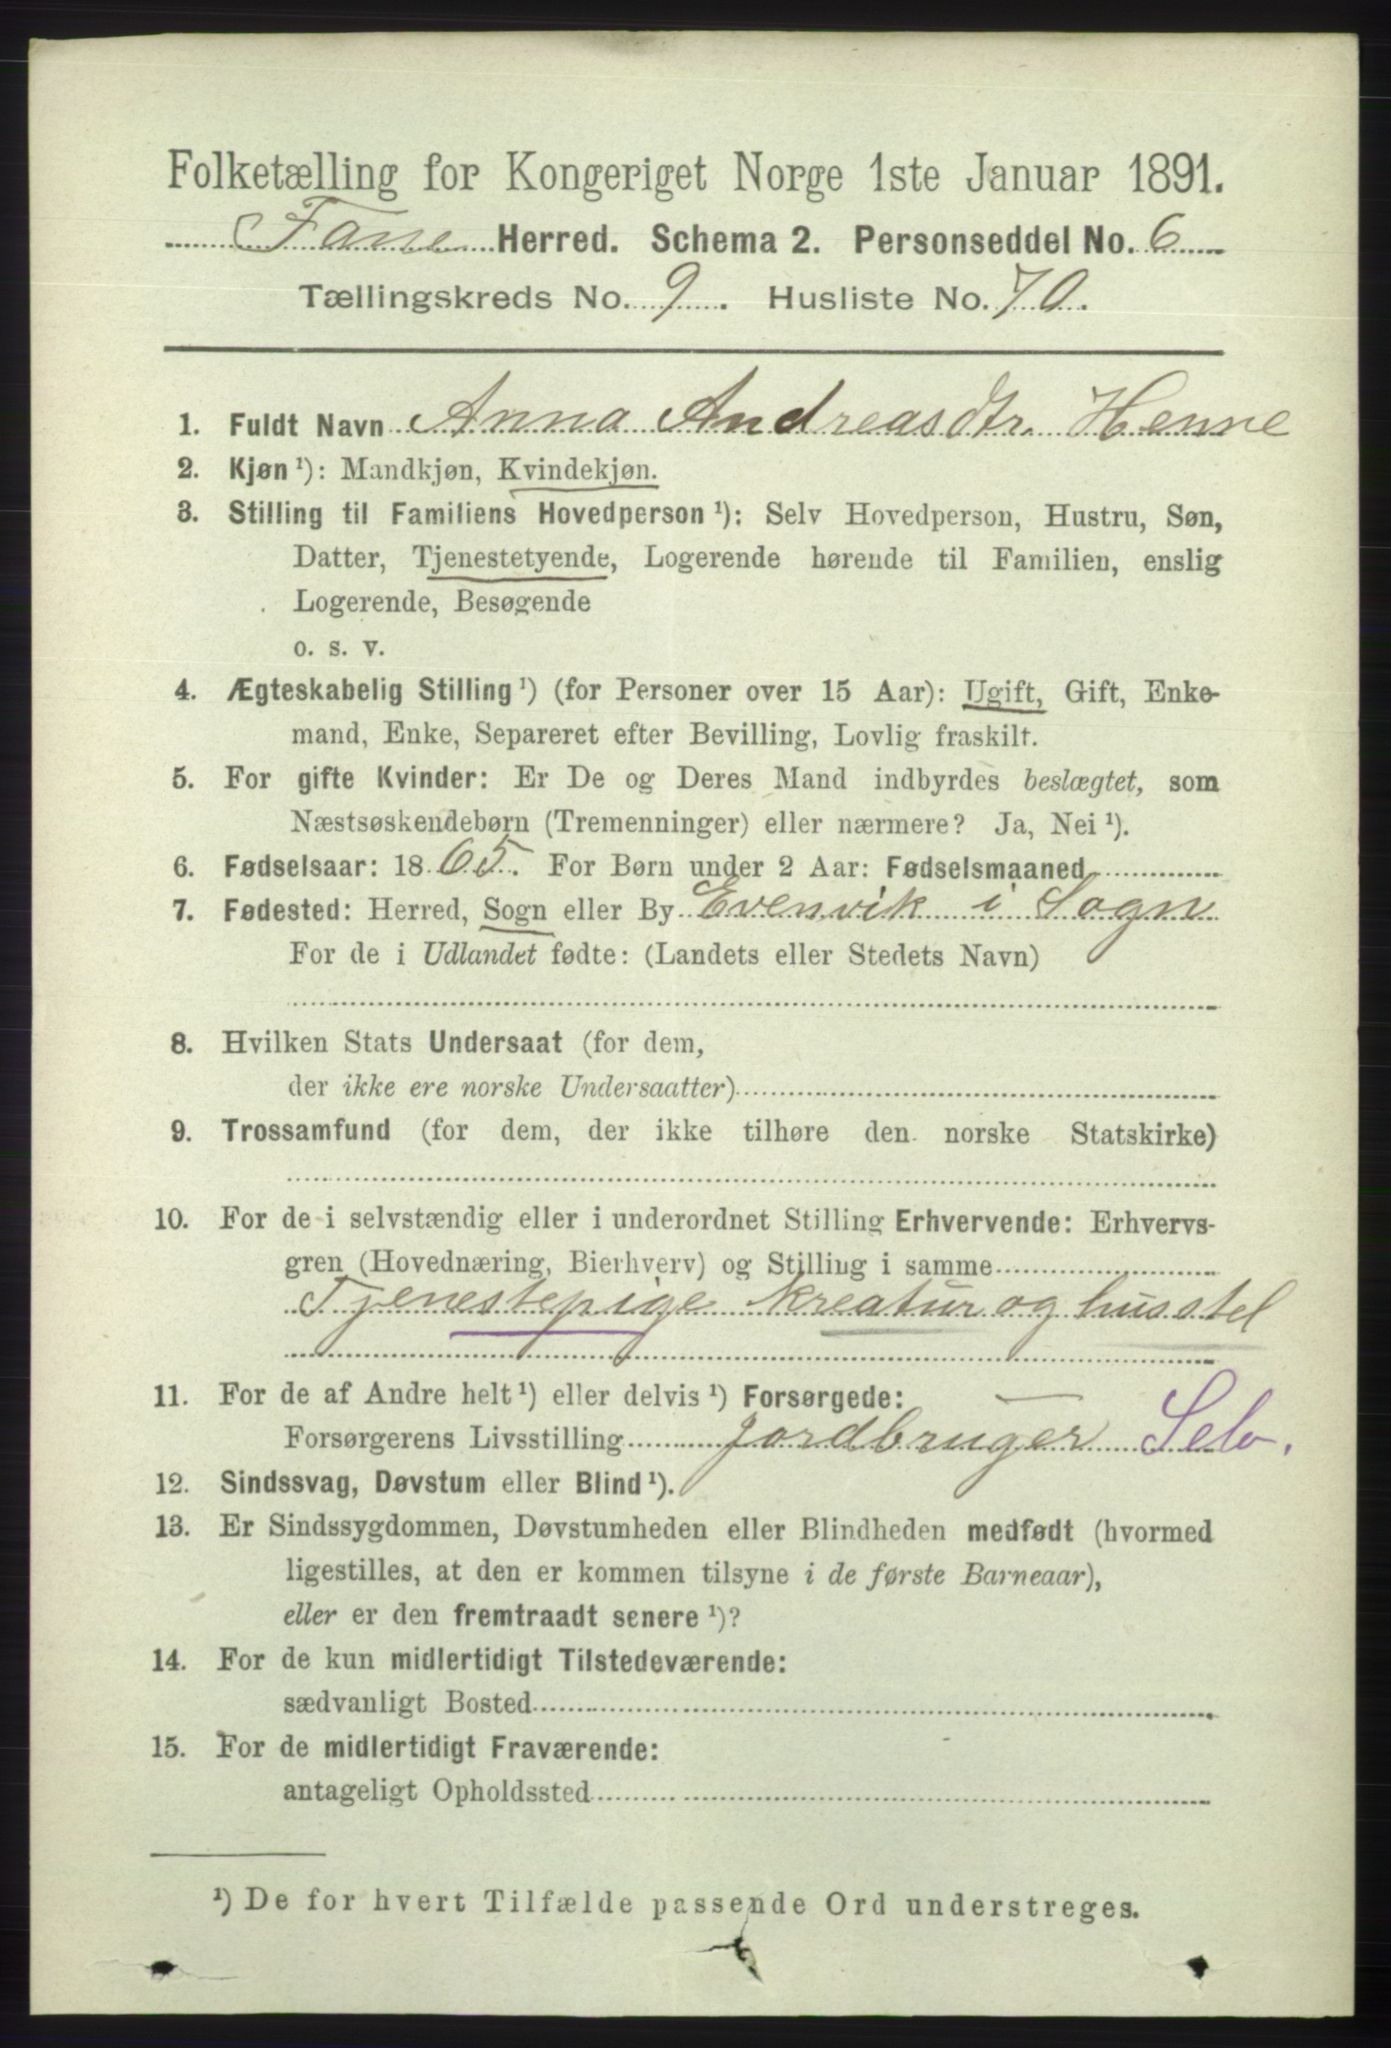 Folketælling for Kongeriget Norge 1ste Januar 1891.
Fane Herred. Schema 2. Personseddel No. 6
Tællingskreds No. 9. Husliste No. 70.
1. Fuldt Navn Anna Andreasdtr. Henne
2. Kjøn ¹): Mandkjøn, Kvindekjøn.
3. Stilling til Familiens Hovedperson ¹): Selv Hovedperson, Hustru, Søn,
Datter, Tjenestetyende, Logerende hørende til Familien, enslig
Logerende, Besøgende
o. s. v.
4. Ægteskabelig Stilling ¹) (for Personer over 15 Aar): Ugift, Gift, Enke-
mand, Enke, Separeret efter Bevilling, Lovlig fraskilt.
5. For gifte Kvinder: Er De og Deres Mand indbyrdes beslægtet, som
Næstsøskendebørn (Tremenninger) eller nærmere? Ja, Nei ¹).
6. Fødselsaar: 1865. For Børn under 2 Aar: Fødselsmaaned
7. Fødested: Herred, Sogn eller By Evenvik i Sogn
For de i Udlandet fødte: (Landets eller Stedets Navn)
8. Hvilken Stats Undersaat (for dem,
der ikke ere norske Undersaatter)
9. Trossamfund (for dem, der ikke tilhøre den norske Statskirke)
10. For de i selvstændig eller i underordnet Stilling Erhvervende: Erhvervs-
gren (Hovednæring, Bierhverv) og Stilling i samme
Tjenestepige kreatur og husstel
11. For de af Andre helt ¹) eller delvis ¹) Forsørgede:
Forsørgerens Livsstilling Jordbruger Selv.
12. Sindssvag, Døvstum eller Blind ¹).
13. Er Sindssygdommen, Døvstumheden eller Blindheden medfødt (hvormed
ligestilles, at den er kommen tilsyne i de første Barneaar),
eller er den fremtraadt senere ¹)?
14. For de kun midlertidigt Tilstedeværende:
sædvanligt Bosted
15. For de midlertidigt Fraværende:
antageligt Opholdssted
¹) De for hvert Tilfælde passende Ord understreges.